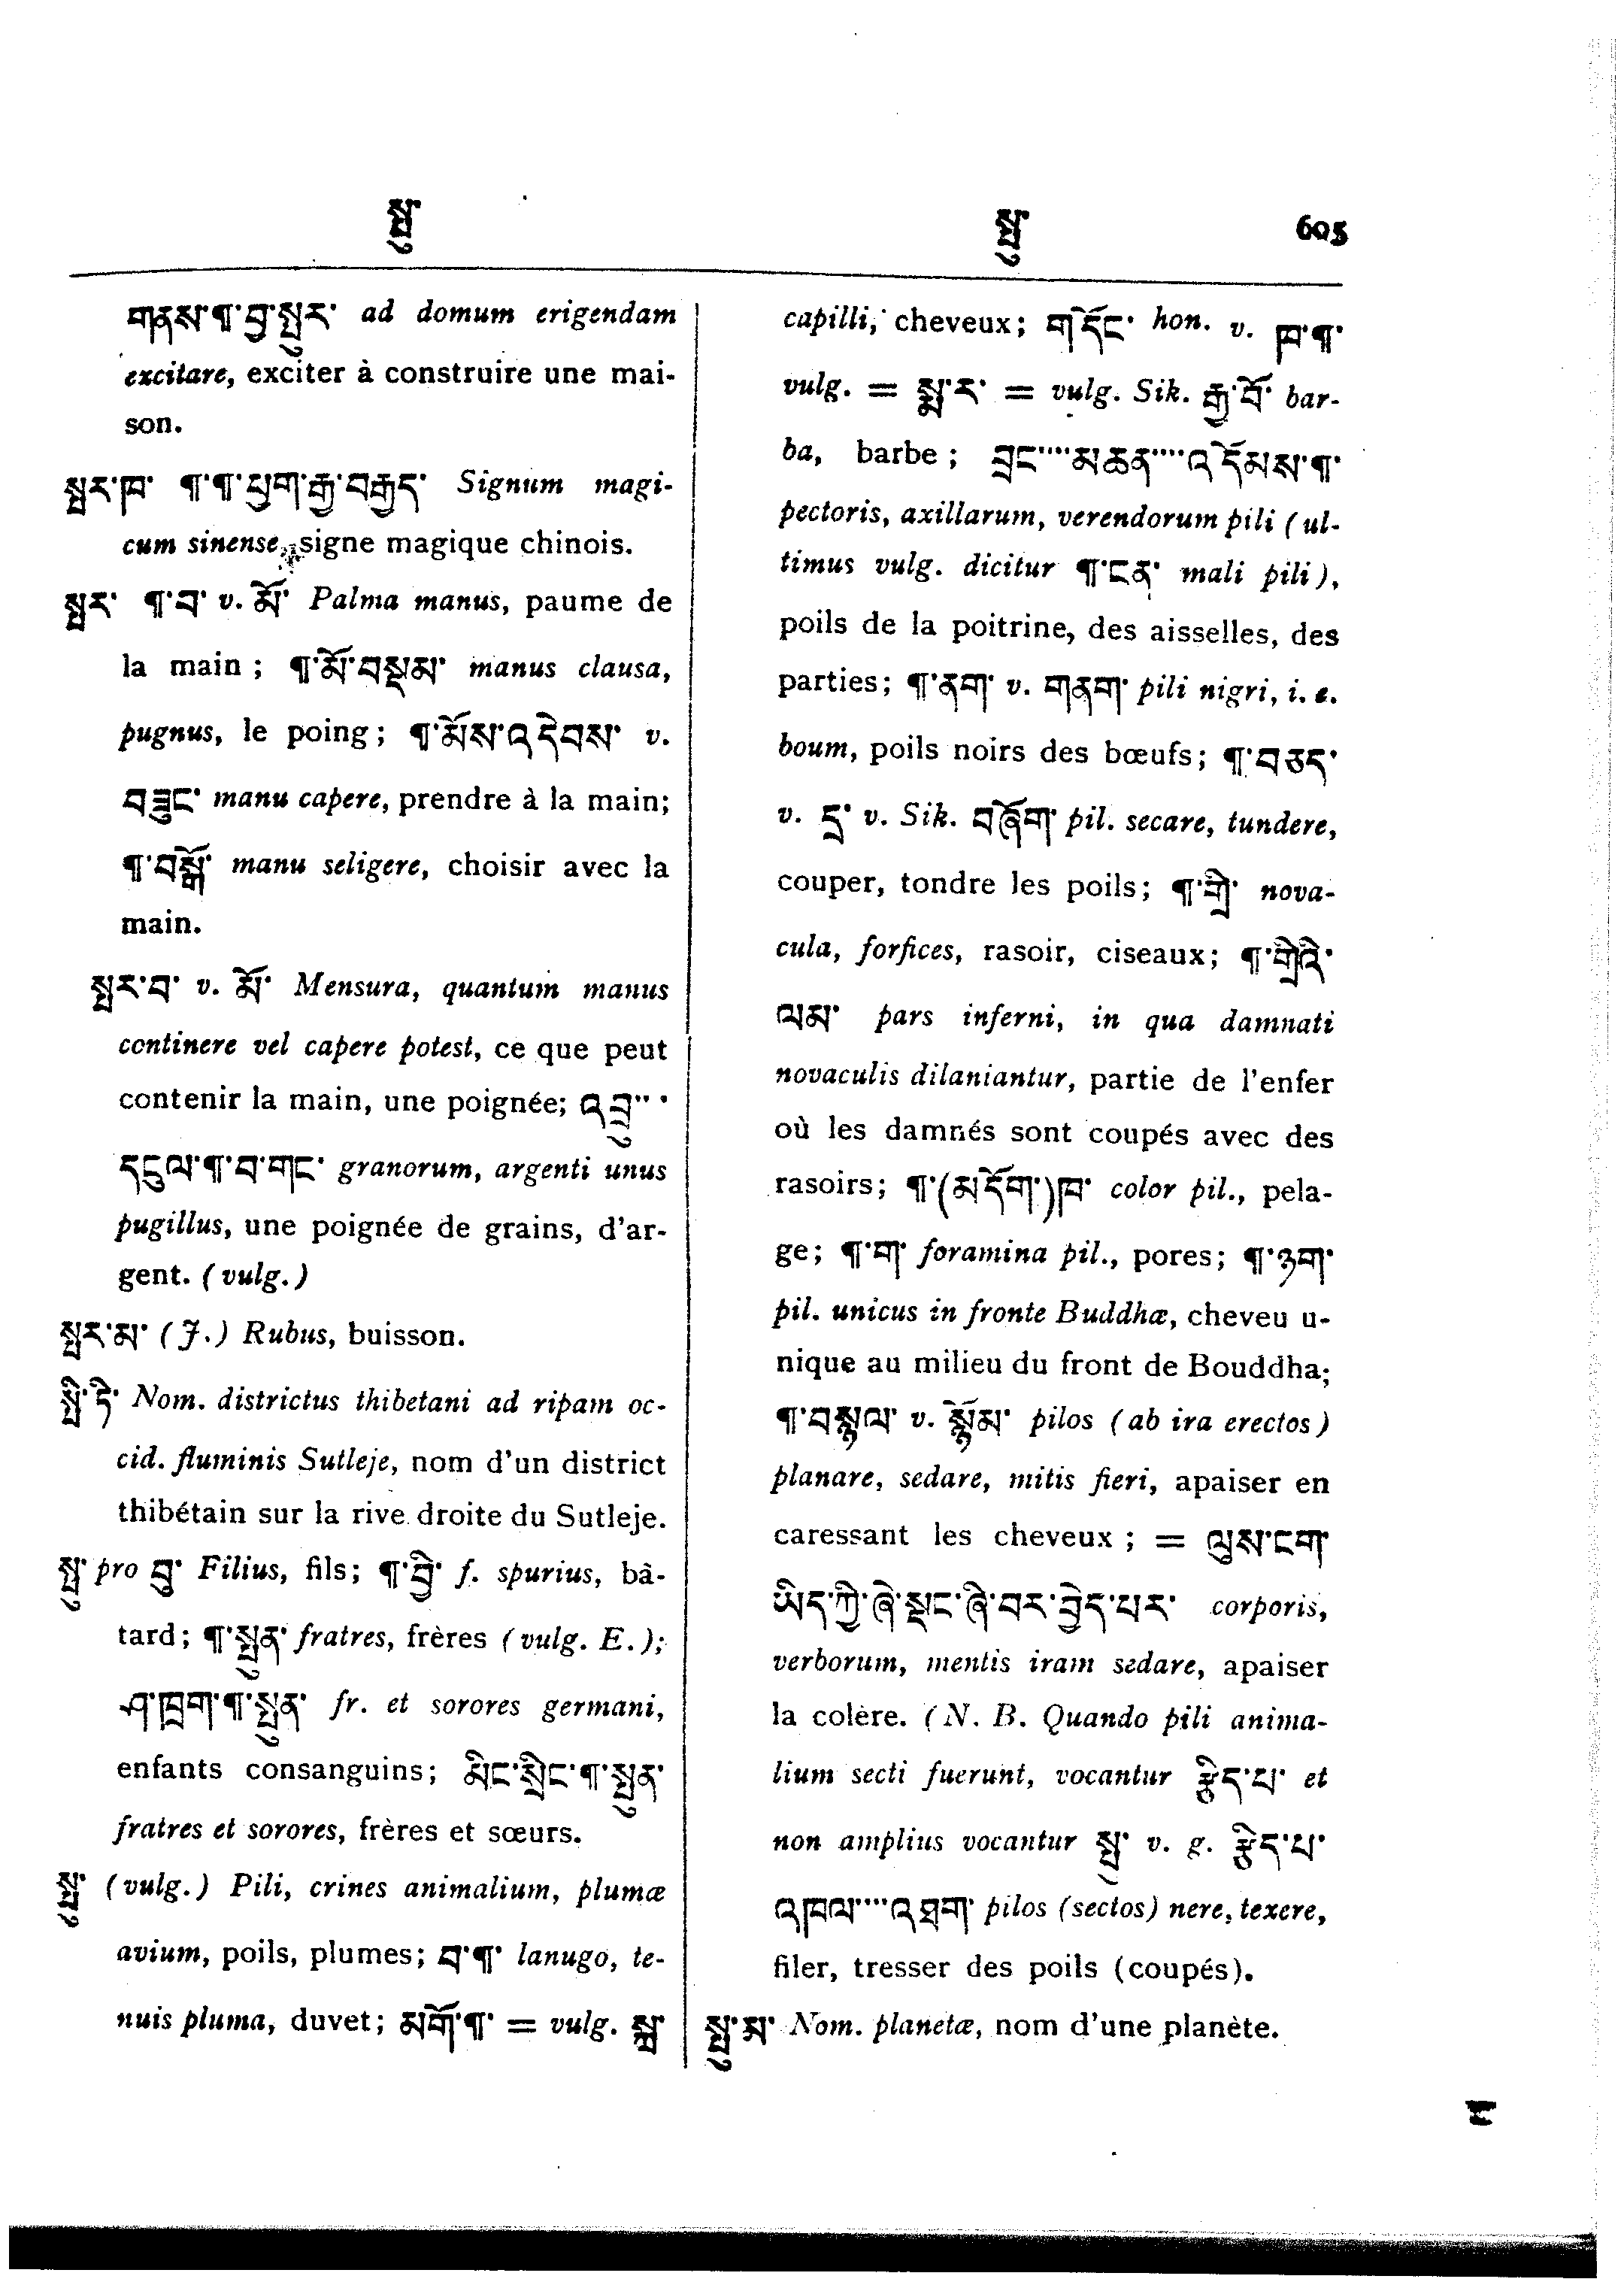 སྤུ་ སྤུ་ 605
གནས་༹་བྱ་སྤུར་ ad domum erigendam
excitare, exciter à construire une mai-
son.
སྤར་ཁ་ ¶་¶་ཕྱག་རྒྱ་བརྒྱད་ Signum magi-
cum sinense, signe magique chinois.
སྤར་ ¶་བ་ v. མོ་ Palma manus, paume de
la main; ¶་མོ་བསྡམ་ manus clausa,
pugnus, le poing; ¶་མོས་འདེབས་ v.
བཟུང་ manu capere, prendre à la main;
¶་བསྒྲོ་ manu seligere, choisir avec la
main.
སྤར་བ་ v. མོ་ Mensura, quantum manus
continere vel capere potest, ce que peut
contenir la main, une poignée; འབྲུ་་་་
དངུལ་¶་བ་གང་ granorum, argenti unus
pugillus, une poignée de grains, d'ar-
gent. (vulg.)
སྤར་མ་ (J.) Rubus, buisson.
སྤི་ཏི་ Nom. districtus thibetani ad ripam oc-
cid. fluminis Sutleje, nom d'un district
thibétain sur la rive droite du Sutleje.
སྤུ་ pro བུ་ Filius, fils; ¶་བྱི་ f. spurius, bâ-
tard; ¶་སྤུན་ fratres, frères (vulg. E.);
ཤ་ཁྲག་¶་སྤུན་ fr. et sorores germani,
enfants consanguins; མིང་སྲིང་¶་སྤུན་
fratres et sorores, frères et sœurs.
སྤུ་ (vulg.) Pili, crines animalium, plumæ
avium, poils, plumes; བ་¶་ lanugo, te-
nuis pluma, duvet; མགོ་¶་ = vulg. སྐྲ་
capilli, cheveux; གདོང་ hon. v. ཁ་¶་
vulg. = སྨ་ར་ = vulg. Sik. རྒྱ་བོ་ bar-
ba, barbe; བྲང་་་་་མཆན་་་་་འདོམས་¶་
pectoris, axillarum, verendorum pili (ul-
timus vulg. dicitur ¶་ངན་ mali pili),
poils de la poitrine, des aisselles, des
parties; ¶་ནག་ v. གནག་ pili nigri, i. e.
boum, poils noirs des bœufs; ¶་བཅད་
v. དྲ་ v. Sik. བཞོག་ pil. secare, tundere,
couper, tondre les poils; ¶་གྲི་ nova-
cula, forfices, rasoir, ciseaux; ¶་གྲིའི་
ལམ་ pars inferni, in qua damnati
novaculis dilaniantur, partie de l'enfer
où les damnés sont coupés avec des
rasoirs; ¶་(མདོག་)ཁ་ color pil., pela-
ge; ¶་ག་ foramina pil., pores; ¶་ཉག་
pil. unicus in fronte Buddhæ, cheveu u-
nique au milieu du front de Bouddha;
¶་བསྙལ་ v. སྙོམ་ pilos (ab ira erectos)
planare, sedare, mitis fieri, apaiser en
caressant les cheveux; = ལུས་ངག་
ཡིད་ཀྱི་ཞེ་སྡང་ཞི་བར་བྱེད་པར་ corporis,
verborum, mentis iram sedare, apaiser
la colère. (N. B. Quando pili anima-
lium secti fuerunt, vocantur རྩིད་པ་ et
non amplius vocantur སྤུ་ v. g. རྩིད་པ་
འཁལ་་་་་འཐག་ pilos (sectos) nere, texere,
filer, tresser des poils (coupés).
སྤུ་མ་ Nom. planetæ, nom d'une planète.